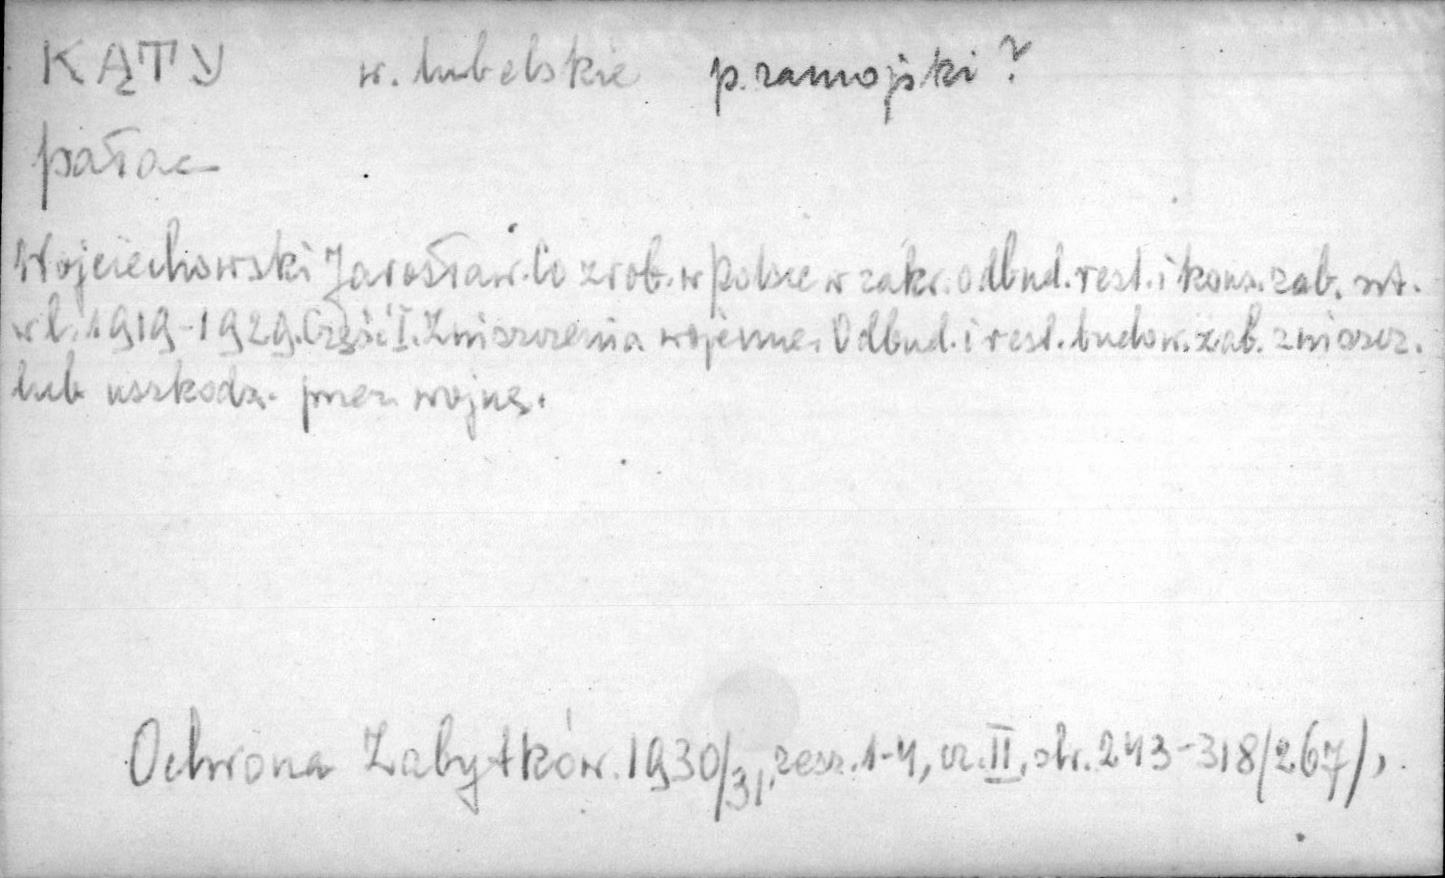 KĄTY w. lubelskie p. zamojski?
pałac
Wojciechowski Jarosław. Co zrob. w Polsce w zakr. odbud. rest. i kons. zab. szt.
w l. 1919-1929. Część I. Zniszczenia wojenne. Odbud. i rest. budow. zab. zniszcz.
lub uszkodz. przez wojnę.
Ochrona Zabytków. 1930/31, zesz. 1-4, cz. II, str. 243-318/267/,.